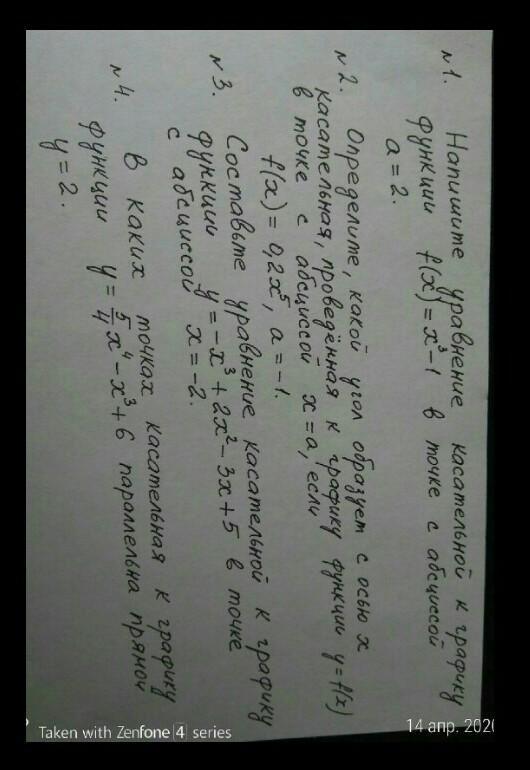 №1. Напишите уравнение касательной к графику
функции f(x)=x³-1 в точке с абсциссой
a=2.
№2. Определите, какой угол образует с осью x
касательная, проведённая к графику функции y=f(x)
в точке с абсциссой x=a, если
f(x)=0,2x⁵, a=-1.
№3. Составьте уравнение касательной к графику
функции y=-x³+2x²-3x+5 в точке
с абсциссой x=-2.
№4. В каких точках касательная к графику
функции y=5/4x⁴-x³+6 параллельна прямой
y=2.
Taken with Zenfone 4 series
14 апр. 2020